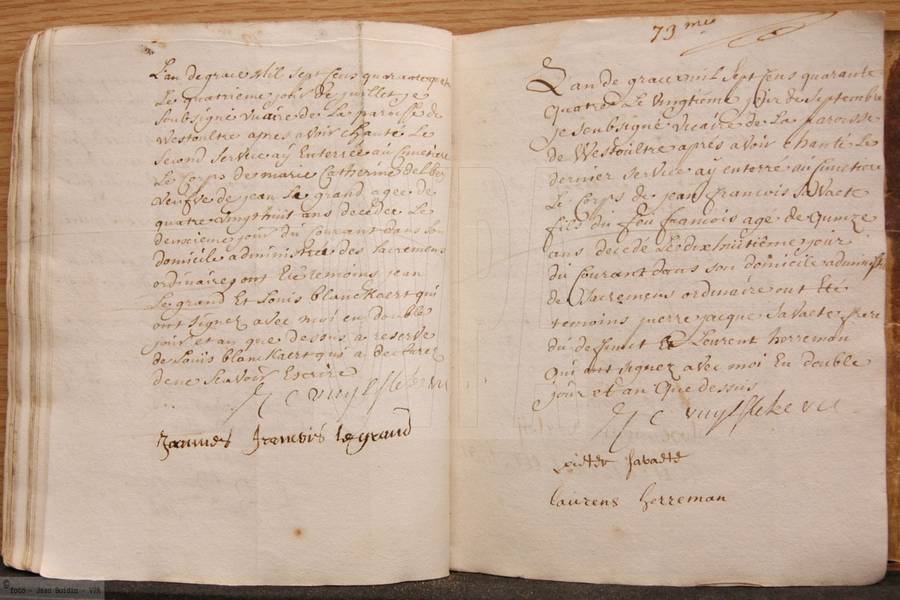 L'an de grace Mil sept cens quarante
Le quatrieme jour de juillet je
soubsigné vicaire de La paroisse de
Westoultre apres avoir chanté Le
second service aÿ Enterrée au Cimetiere
Le corps de marie Catherine
veufve de jean Le grand agee de
quatre vingt huit ans decedee Le
deuxieme jour du Courant dans son
domicile administrée des sacremens
ordinaires ont Eté temoins jean
Le grand Et Louis blanckaert qui
ont signez avec moi en double
jour et an que dessus a reserve
de Louis blanckaert qui a declarez
de ne scavoir Escrire
J C vuylsteke vic
Joannes francois le grand
73 mes
L'an de grace mil sept cens quarante
quatre Le vingtiéme jour de septembre
je soubsigné vicaire de La paroisse
de Westoultre apres avoir chanté Le
dernier service aÿ enterré au Cimetiere
Le Corps de jean francois Savaete
fils du feu francois agé de quinze
ans decedé Le dixhuitiême jour
du Courant dans son domicile administré
de sacremens ordinaire ont Eté
temoins pierre jacque Savaete frere
du deffunct Et Lourent herreman
qui ont signez avec moi En double
jour et an que dessus
J C vuylsteke vic
pieter savaete
laurens herreman
© foto - Jean Boidin - VVF